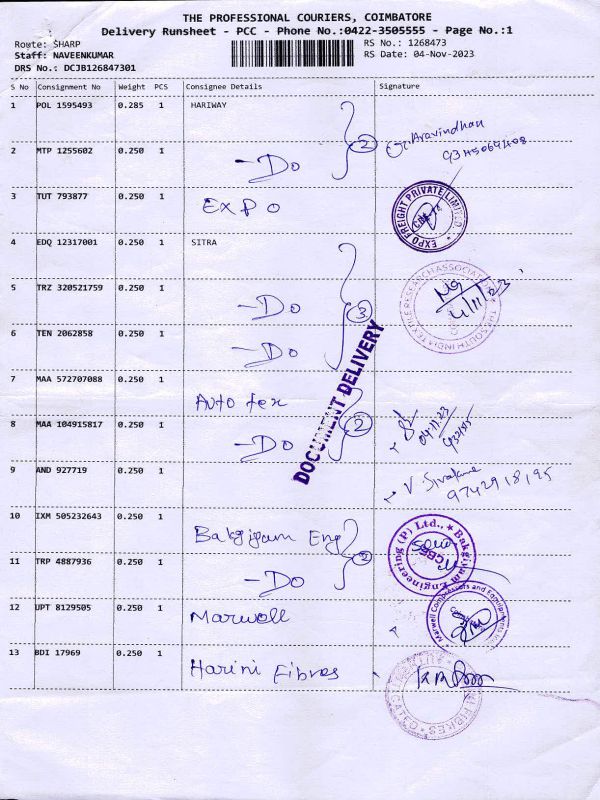 THE PROFESSIONAL COURIERS, COIMBATORE
Delivery Runsheet - PCC - Phone No.:0422-3505555 - Page No.:1
Route: SHARP
RS No.: 1268473
Staff: NAVEENKUMAR
RS Date: 04-Nov-2023
DRS No.: DCJB126847301
S No Consignment No Weight PCS Consignee Details Signature
1 POL 1595493 0.285 1 HARIWAY
2 Aravindhan
2 MTP 1255602 0.250 1 -Do
3 TUT 793877 0.250 1 EXPO
EXPO FREIGHT PRIVATE LIMITED
4 EDQ 12317001 0.250 1 SITRA
THE SOUTH INDIA TEXTILE RESEARCH ASSOCIATION
5 TRZ 320521759 0.250 1 -Do 3
4/11/23
6 TEN 2062858 0.250 1 -Do
DOCUMENT DELIVERY
7 MAA 572707088 0.250 1 Auto tex
8 MAA 104915817 0.250 1 -Do 2
04.11.23
9 AND 927719 0.250 1
9742918195
10 IXM 505232643 0.250 1 Bakgiyam Eng
Bakgiyam Engineering (P) Ltd.,
CBE
11 TRP 4887936 0.250 1 -Do 2
12 UPT 8129505 0.250 1 Marwell
Marwell Compressors and Equipments
13 BDI 17969 0.250 1 Harini Fibres
FIBRES